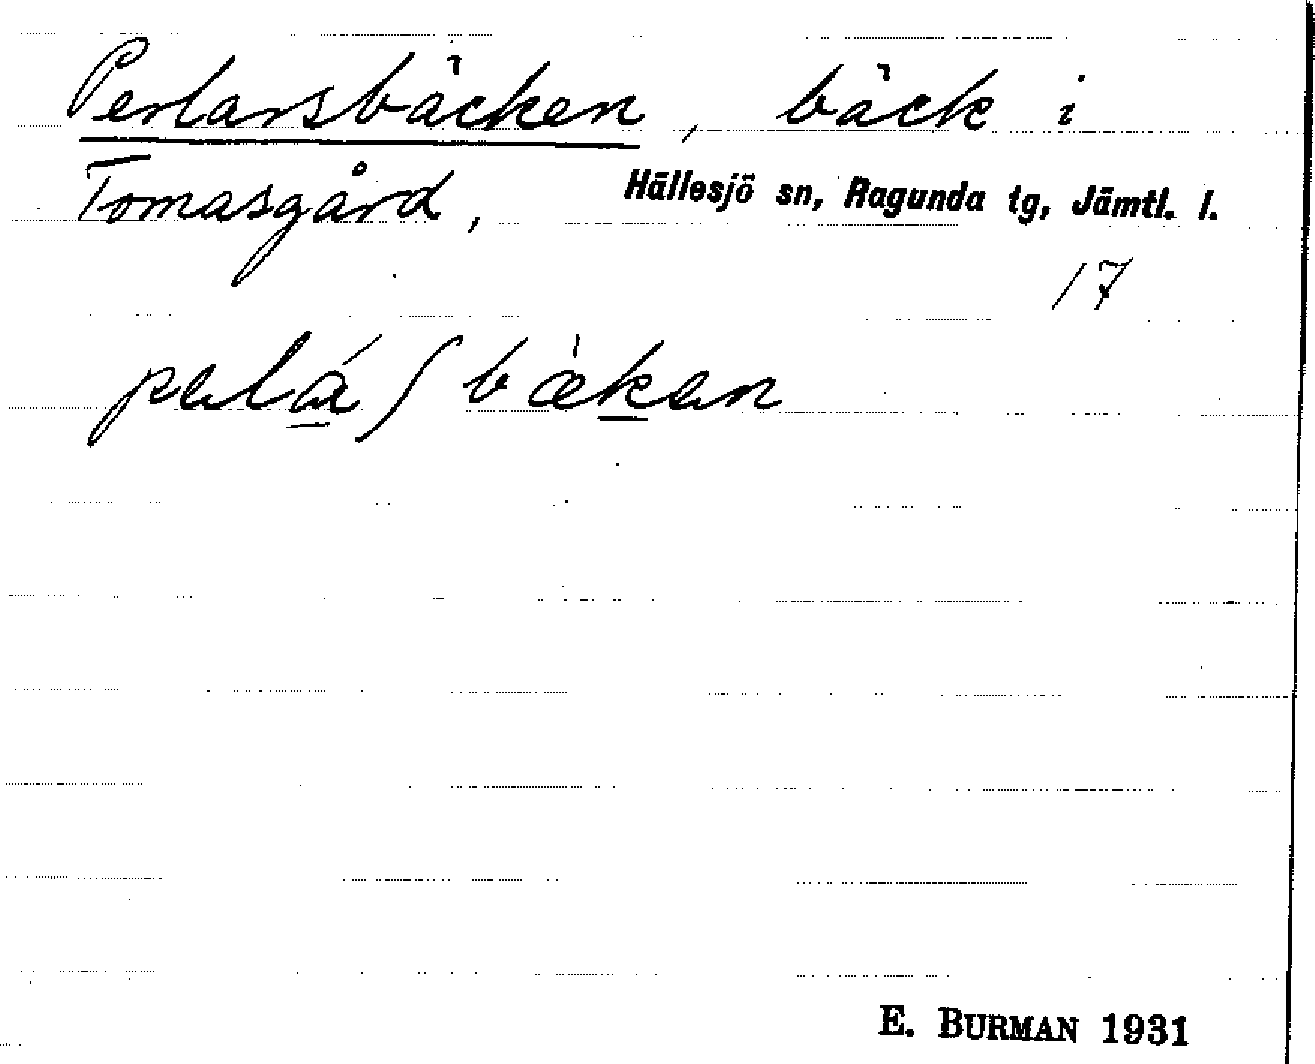 Perlarsbäcken, bäck i
Tomasgård, Hällesjö sn, Ragunda tg, Jämtl. l.
17
pelá ʃ bæ̀ken
E. BURMAN 1931